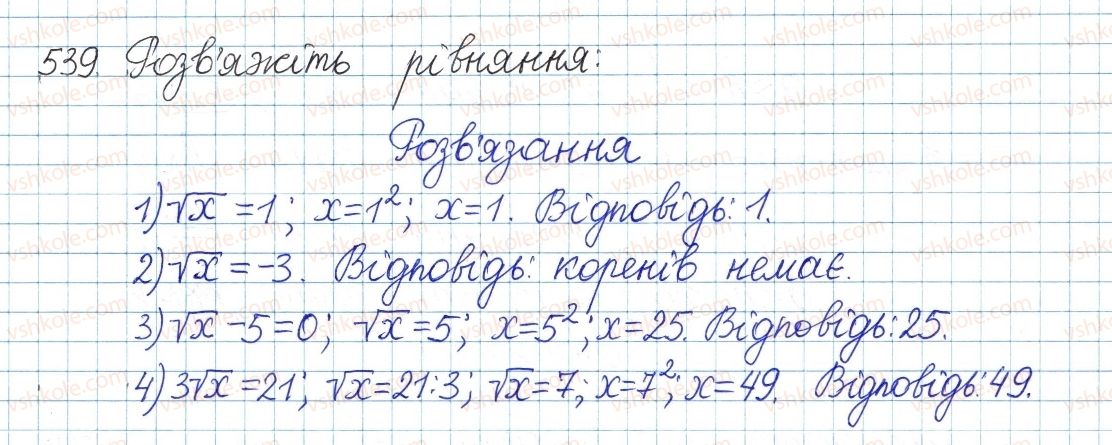 539. Розв'яжіть рівняння:
Розв'язання
1) √x = 1; x = 1²; x = 1. Відповідь: 1.
2) √x = -3. Відповідь: коренів немає.
3) √x - 5 = 0; √x = 5; x = 5²; x = 25. Відповідь: 25.
4) 3√x = 21; √x = 21:3; √x = 7; x = 7²; x = 49. Відповідь: 49.